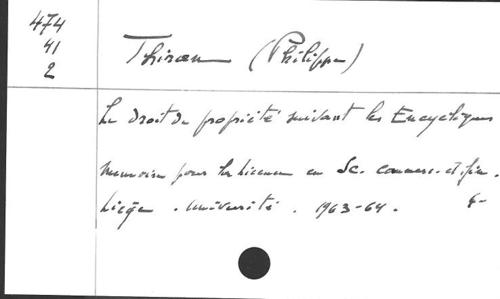 474
41
2
Thiran (Philippe)
Le droit de propriété suivant les Encycliques
Mémoire pour la Licence en Sc. commerc. et fin.
Liège . Université . 1963-64 .